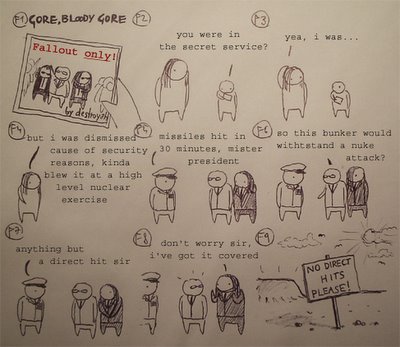 F1 GORE, BLOODY GORE
Fallout only!
by destroyah
F2
you were in
the secret service?
F3
yea, i was...
F4
but i was dismissed
cause of security
reasons, kinda
blew it at a high
level nuclear
exercise
F5
missiles hit in
30 minutes, mister
president
F6
so this bunker would
withtstand a nuke
attack?
F7
anything but
a direct hit sir
F8
don't worry sir,
i've got it covered
F9
NO DIRECT
HITS
PLEASE!